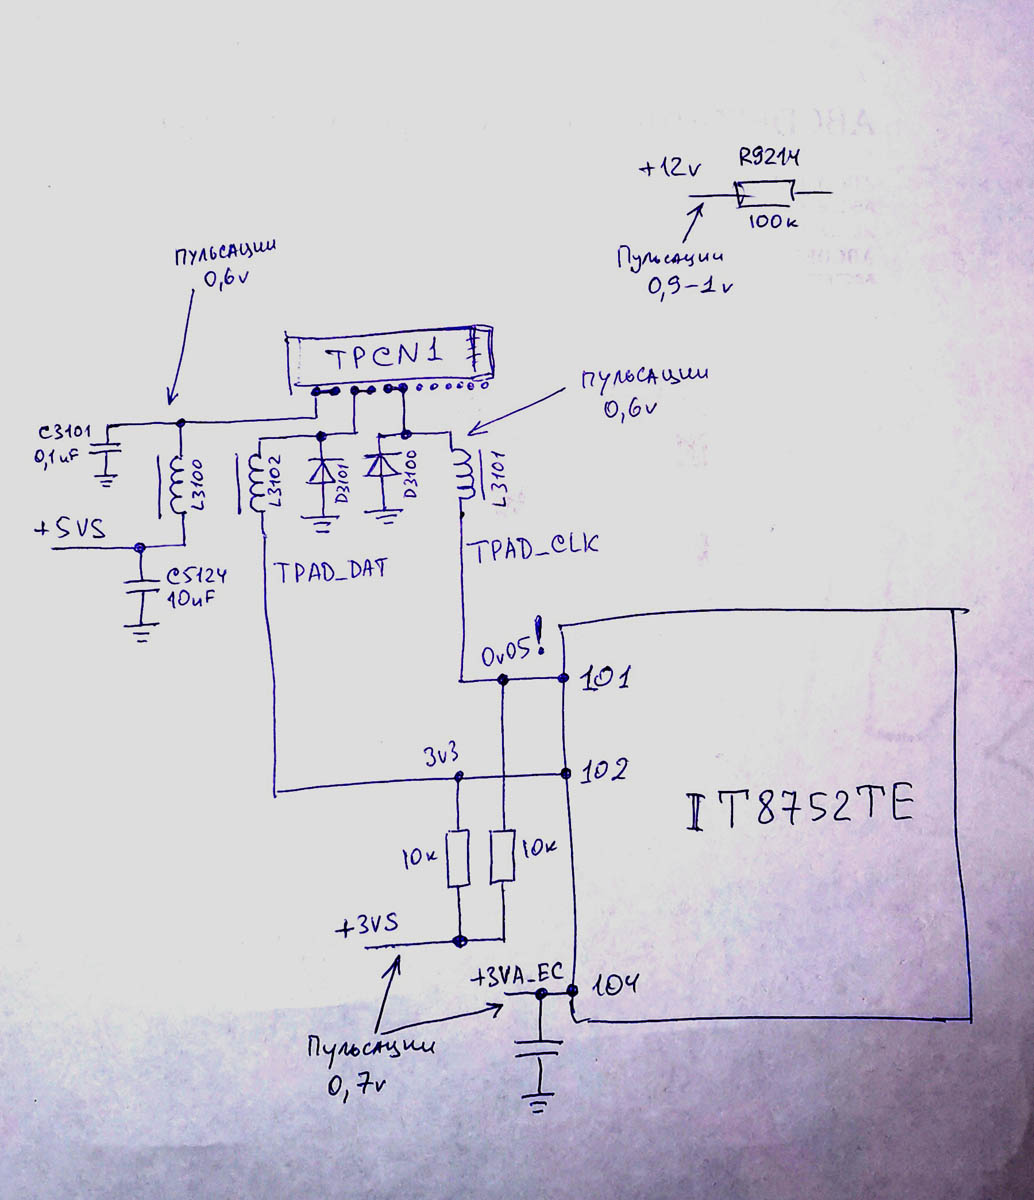 +12v
R9214
100к
Пульсации
0,9-1v
ПУЛЬСАЦИИ
0,6v
TPCN1
ПУЛЬСАЦИИ
0,6v
C3101
0,1uF
L3100
L3102
D3101
D3100
L3101
+5VS
C5124
10uF
TPAD_DAT
TPAD_CLK
0v05!
101
3v3
102
IT8752TE
10к
10к
+3VS
+3VA_EC
104
Пульсации
0,7v